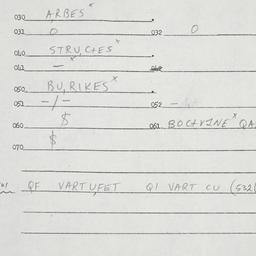 030 ARBES x
031 O 032 O
040 STRUCTES x
041 — x 042
050 BURIKES x
051 -/- 052 -
060 $ 061 BOCHVINE x QA
070 $
QF VARTUFET Q1 VART CU (532